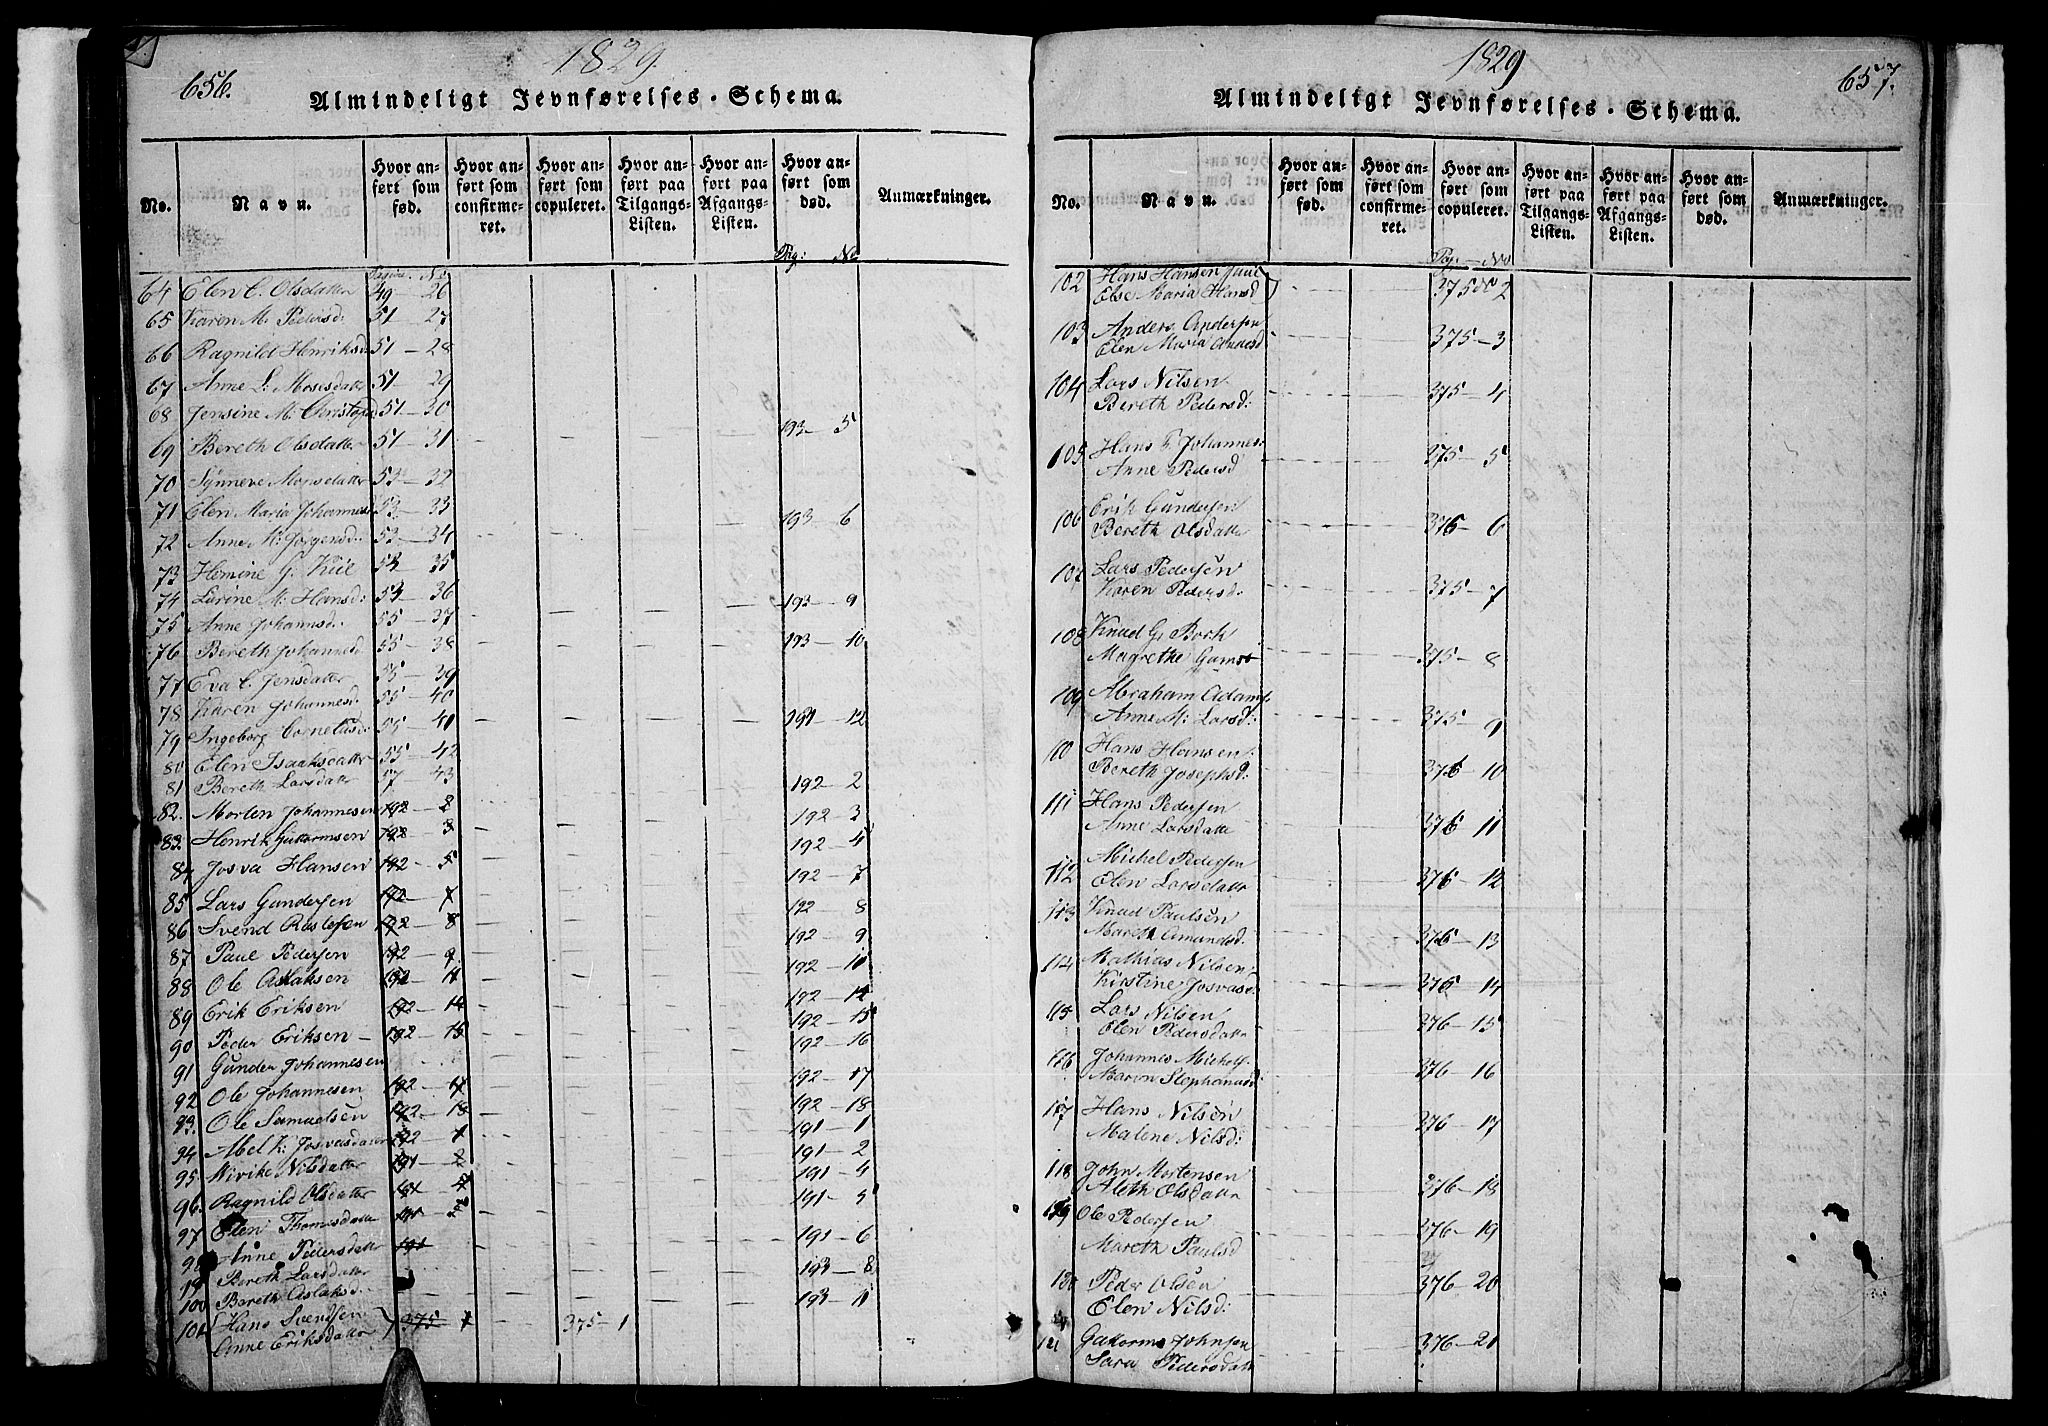 656.
1829.
Almindeligt Jevnførelses-Schema.
No.
Navn.
Hvor anført som fød.
Hvor anført som confirmeret.
Hvor anført som copuleret.
Hvor anført paa Tilgangs-Listen.
Hvor anført paa Afgangs-Listen.
Hvor anført som død.
Anmærkninger.
Pagina. No
Pag: No
64 Elen C. Olsdatter 49 — 26
65 Karen M. Pedersd: 51 — 27
66 Ragnild Henriksd: 51 — 28
67 Anne L: Mosesdatter 51 — 29
68 Jensine M. 51 — 30
69 Bereth Olsdatter 51 — 31 193 — 5
70 Synneve Monsdatter 53 — 32
71 Elen Maria Johannesd 53 — 33
72 Anne M: Jørgensd: 53 — 34 193 — 6
73 Hemine G. 53 — 35
74 Larine M: Hansd: 53 — 36
75 Anne Johannsd. 55 — 37 193 — 9
76 Bereth Johannesd 55 — 38 193 — 10
77 Eva C. Jensdatter 55 — 39
78 Karen Johannesd. 55 — 40
79 Ingeborg Corneliusd: 55 — 41 191 — 12
80 Elen Isaaksdatter 55 — 42
81 Bereth Larsdatter 57 — 43 192 — 2
82. Morten Johannesen 192 — 2 192 — 3
83. Henrik Guttormsen 192 — 3 192 — 4
84 Josva Hansen 192 — 5 192 — 7
85 Lars Gundersen 192 — 7 192 — 8
86 Svend 192 — 8 192 — 9
87 Paul Pedersen 192 — 9 192 — 11
88 Ole Aslaksen 192 — 11 192 — 14
89 Erik Eriksen 192 — 14 192 — 15
90 Peder Eriksen 192 — 15 192 — 16
91 Gunder Johannesen 192 — 17
92 Ole Johannesen 192 — 17 192 — 18
93. Ole Samuelsen 192 — 18 191 — 1
94 Abel K: Josvasdatter 192 — 1 191 — 2
95 Wivike Nilsdatter 191 — 2 191 — 4
96. Ragnild Olsdatter 191 191 — 5
97 Elen Thomasdatter 191 191 — 6
98 Anne Pedersdatter 191 193 — 8
Bereth Larsdatter 193 — 11
100 Bereth Aslaksd.
101 Hans Svendsen
Anne Eriksdatter 375 — 1 375 — 1
1829
657.
Almindeligt Jevnførelses-Schema.
No.
Navn.
Hvor anført som fød.
Hvor anført som confirmeret.
Hvor anført som copuleret.
Hvor anført paa Tilgangs-Listen.
Hvor anført paa Afgangs-Listen.
Hvor anført som død.
Anmærkninger.
Pag. — No
102 Hans Hansen Juul
Else Maria Hansd 375 2
103 Anders Andersen
Elen Maria 375 — 3
104 Lars Nilsen
Bereth Pedersd: 375 — 4
105 Hans F. Johannes:
Anne Pedersd 375 — 5
106 Erik Gundersen
Bereth Olsdatter 375 — 6
107 Lars Pedersen
Karen Pedersd: 375 — 7
108 Knud G. Bork
Magrethe 375 — 8
109 Abraham Adams
Anne M: Larsd: 375 — 9
110 Hans Hansen
Bereth Josephsd: 376 — 10
111 Hans Pedersen
Anne Larsdatter 376 11
112 Michel Pedersen
Elen Larsdatter 376 — 12
113 Knud Paulsen
Mareth Amundsd. 376 — 13
114 Mathias Nilsen
Kirstine Josvasd: 376 — 14
115 Lars Nilsen
Elen Pedersdatter 376 — 15
116 Johannes Michels
Maren Stephanusd: 376 — 16
117 Hans Nilsen
Malene Nilsd: 376 — 17
118 John Mortensen
Aleth Olsdatter 376 — 18
119 Ole Pedersen
Mareth Paulsd 376 — 19
120 Peder Olsen
Elen Nilsd: 376 — 20
121 Guttorm Johnsen
Sara Pedersdatter 376 — 21